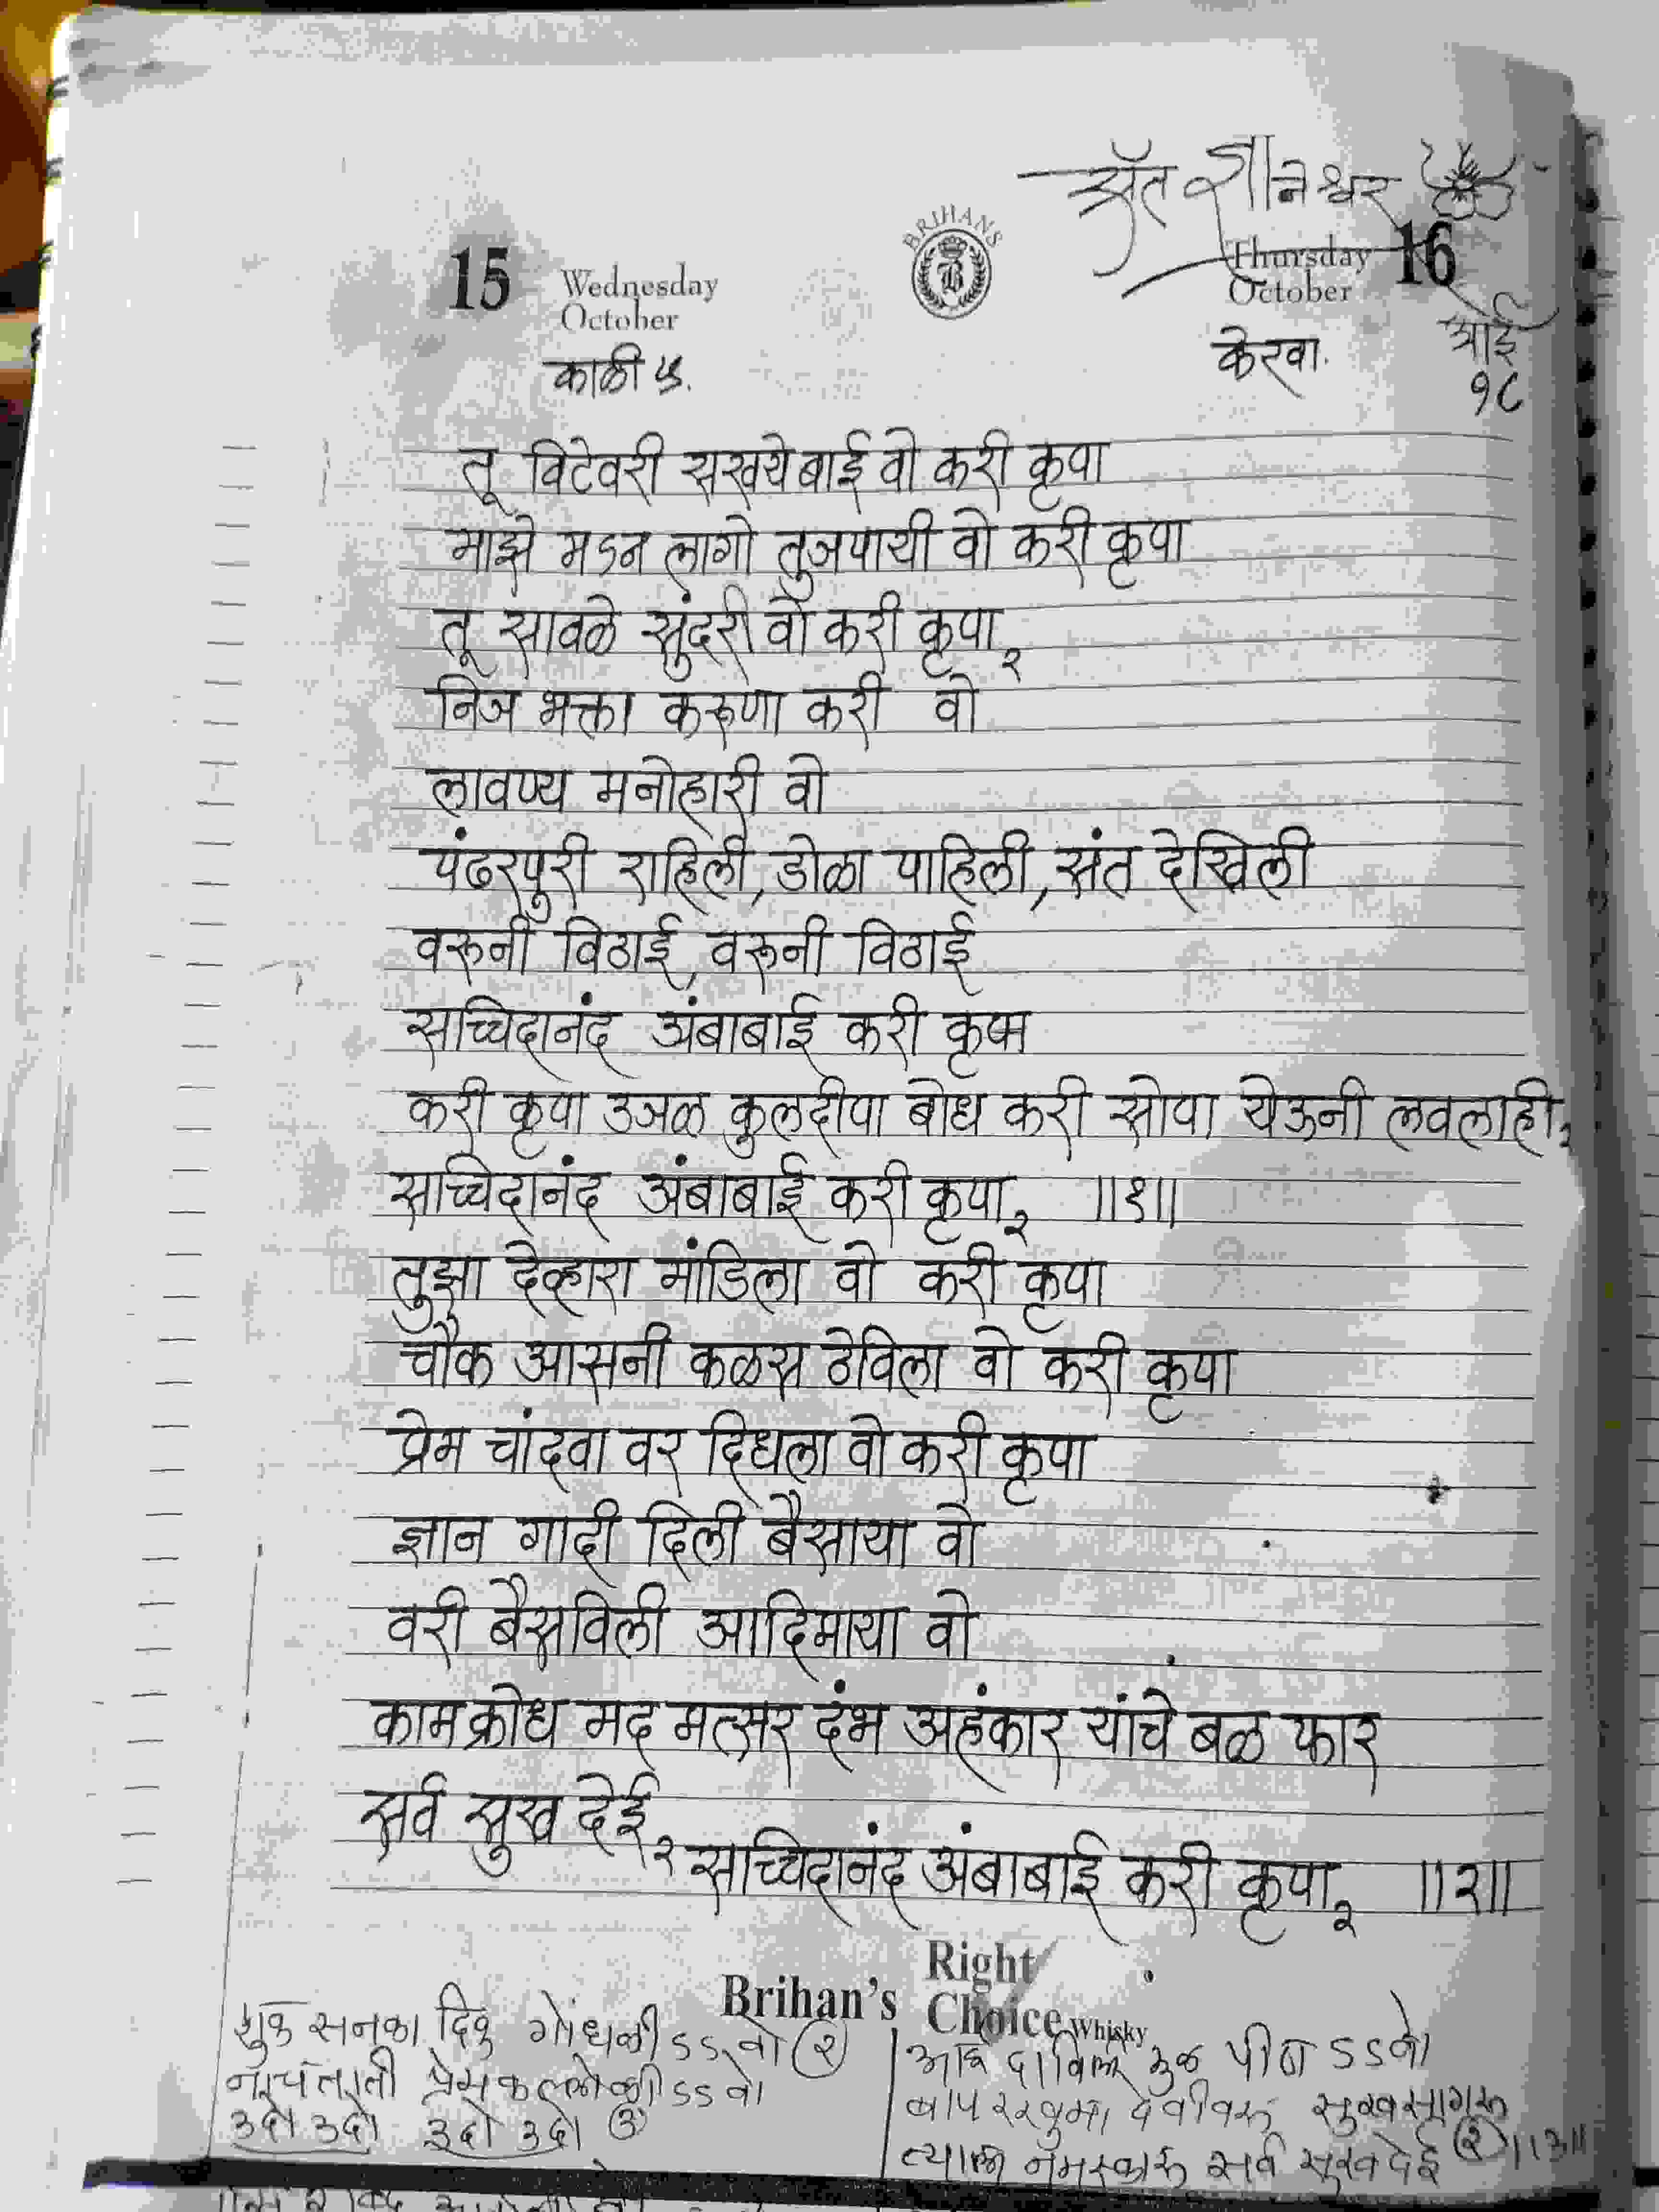 संत ज्ञानेश्वर
BRIHANS
B
15 Wednesday October
Thursday October 16
काळी ५.
केरवा.
आई १८
तू विटेवरी सखये बाई वो करी कृपा
माझे मऽन लागो तुजपायी वो करी कृपा
तू सावळे सुंदरी वो करी कृपा २
निज भक्ता करुणा करी वो
लावण्य मनोहारी वो
पंढरपुरी राहिली, डोळा पाहिली, संत देखिली
वरूनी विठाई, वरूनी विठाई
सच्चिदानंद अंबाबाई करी कृपा
करी कृपा उजळ कुलदीपा बोध करी सोपा येऊनी लवलाही २
सच्चिदानंद अंबाबाई करी कृपा २ ॥१॥
तुझा देव्हारा मांडिला वो करी कृपा
चौक आसनी कळस ठेविला वो करी कृपा
प्रेम चांदवा वर दिधला वो करी कृपा
ज्ञान गादी दिली बैसाया वो
वरी बैसविली आदिमाया वो
काम क्रोध मद मत्सर दंभ अहंकार यांचे बळ फार
सर्व सुख देई २
सच्चिदानंद अंबाबाई करी कृपा २ ॥२॥
Brihan's Right Choice Whisky
शुक सनका दिक गोंधळी ऽऽ वो (२)
नाचताती प्रेम कल्लोळी ऽऽ वो
उदो उदो उदो उदो (३)
मुळ पीठ ऽऽ वो
बाप रखुमा देवीवरू सुखसागरू
त्याला नमस्कारू सर्व सुख देई (२) ॥३॥